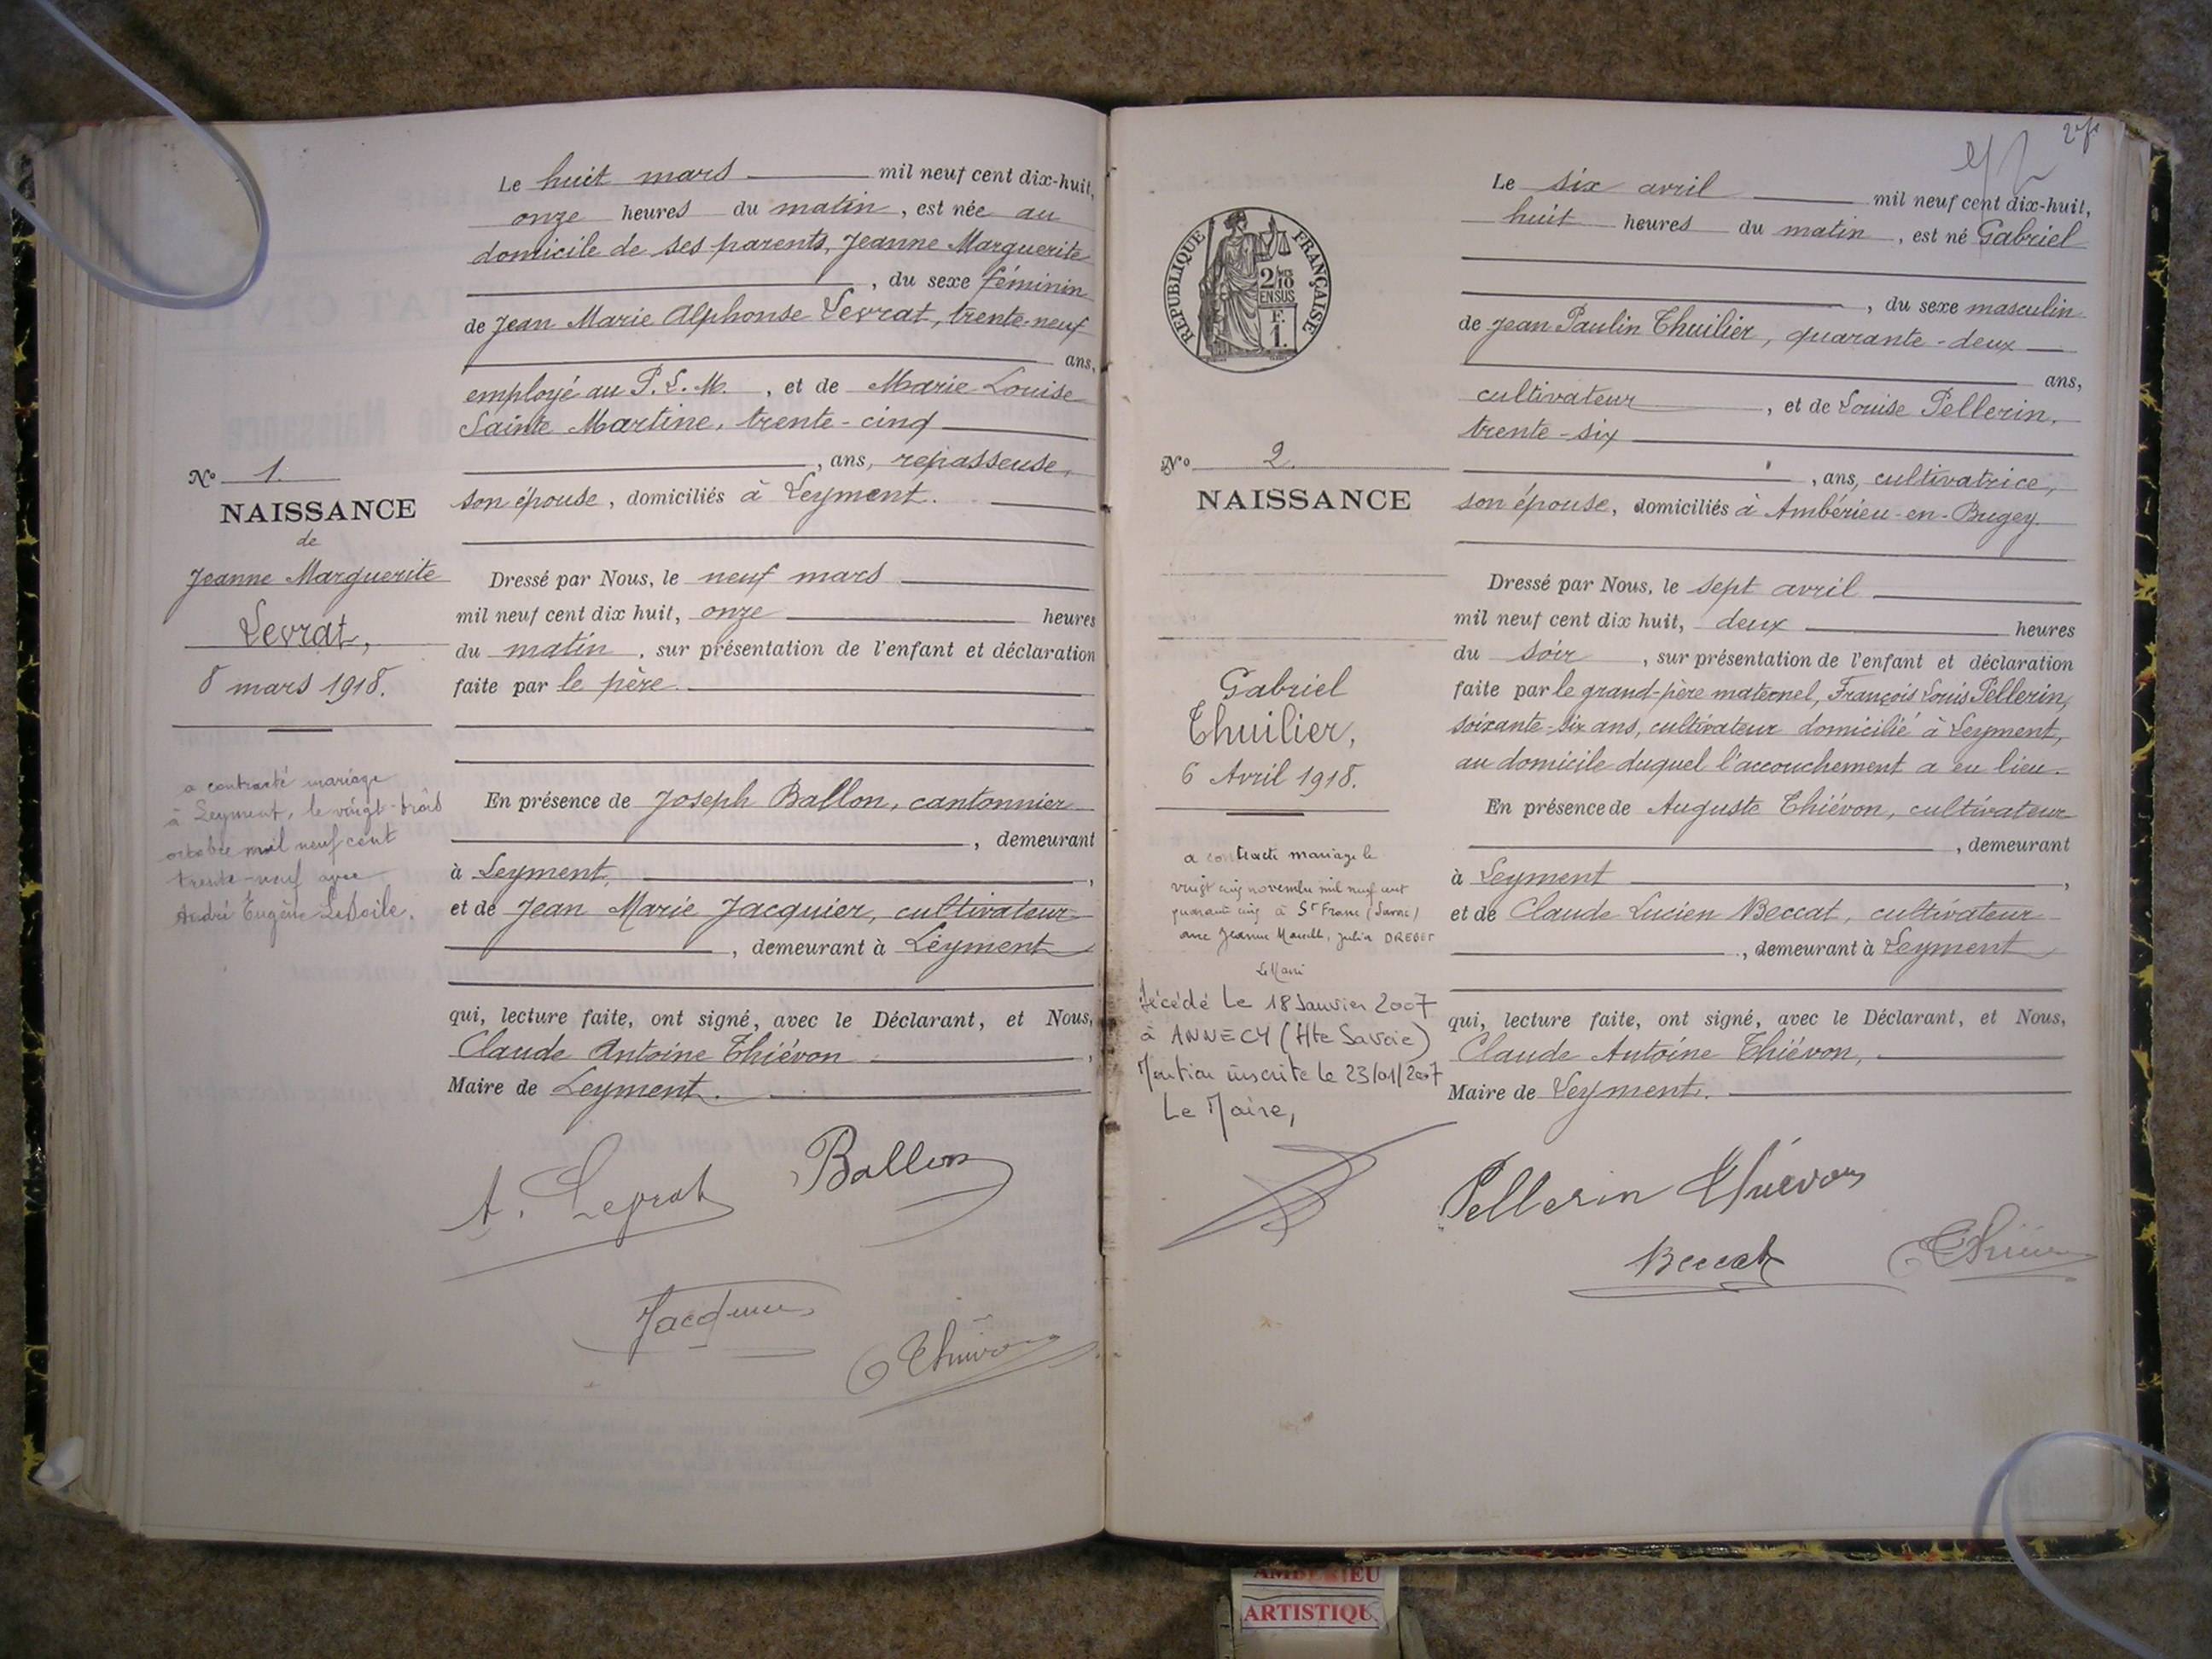 Le huit mars mil neuf cent dix-huit,
onze heures du matin, est née au
domicile de ses parents, Jeanne Marguerite
, du sexe féminin
de Jean Marie Alphonse Levrat, trente-neuf
ans,
employé au P. L. M., et de Marie Louise
Sainte Martine, trente-cinq
, ans, repasseuse,
son épouse, domiciliés à Leyment.
No 1.
NAISSANCE
de
Jeanne Marguerite
Levrat,
8 mars 1918.
a contracté mariage
à Leyment, le vingt-trois
octobre mil neuf cent
trente-neuf avec
André Eugène
Dressé par Nous, le neuf mars
mil neuf cent dix huit, onze heures
du matin, sur présentation de l'enfant et déclaration
faite par le père.
En présence de Joseph Ballon, cantonnier
, demeurant
à Leyment,
et de Jean Marie Jacquier, cultivateur
, demeurant à Leyment
qui, lecture faite, ont signé, avec le Déclarant, et Nous,
Claude Antoine Thiévon,
Maire de Leyment.
A. Levrat Ballon
Jacquier
Thiévon
REPUBLIQUE FRANÇAISE
2/10MES
EN SUS
F.
1.
Le six avril mil neuf cent dix-huit,
huit heures du matin, est né Gabriel
, du sexe masculin
de Jean Paulin Thuilier, quarante-deux
ans,
cultivateur, et de Louise Pellerin,
trente-six
, ans, cultivatrice,
son épouse, domiciliés à Ambérieu-en-Bugey.
No 2.
NAISSANCE
Gabriel
Thuilier,
6 Avril 1918.
a contracté mariage le
vingt cinq novembre mil neuf cent
quarante cinq à St Franc (Savoie)
avec Jeanne Marcelle, Julia
Le Maire
Décédé Le 18 Janvier 2007
à ANNECY (Hte Savoie)
Mention inscrite le 23/01/2007
Le Maire,
Dressé par Nous, le sept avril
mil neuf cent dix huit, deux heures
du soir, sur présentation de l'enfant et déclaration
faite par le grand-père maternel, François Louis Pellerin,
soixante-six ans, cultivateur domicilié à Leyment,
au domicile duquel l'accouchement a eu lieu.
En présence de Auguste Thiévon, cultivateur
, demeurant
à Leyment,
et de Claude Lucien Beccat, cultivateur
, demeurant à Leyment
qui, lecture faite, ont signé, avec le Déclarant, et Nous,
Claude Antoine Thiévon,
Maire de Leyment.
Pellerin Thiévon
Beccat Thiévon
AMBERIEU
ARTISTIQU